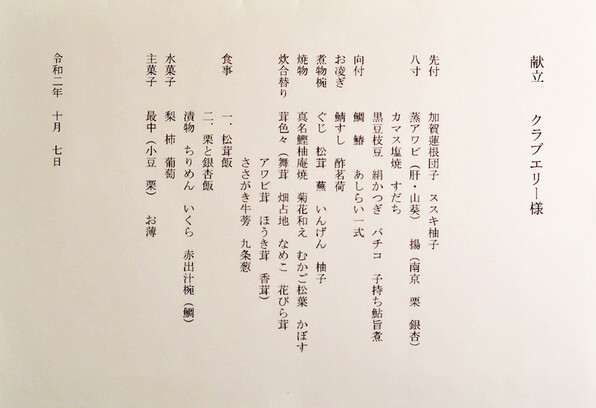 献立　クラブエリー様
先付　加賀蓮根団子　ススキ柚子
八寸　蒸アワビ（肝・山葵）　揚（南京　栗　銀杏）
カマス塩焼　すだち
黒豆枝豆　絹かつぎ　バチコ　子持ち鮎旨煮
向付　鯛　鰆　あしらい一式
お凌ぎ　鯖すし　酢茗荷
煮物椀　ぐじ　松茸　蕪　いんげん　柚子
焼物　真名鰹柚庵焼　菊花和え　むかご松葉　かぼす
炊合替り　茸色々（舞茸　畑占地　なめこ　花びら茸
アワビ茸　ほうき茸　香茸）
ささがき牛蒡　九条葱
食事　一、松茸飯
二、栗と銀杏飯
漬物　ちりめん　いくら　赤出汁椀（鯛）
水菓子　梨　柿　葡萄
主菓子　最中（小豆　栗）　お薄
令和二年　十月　七日